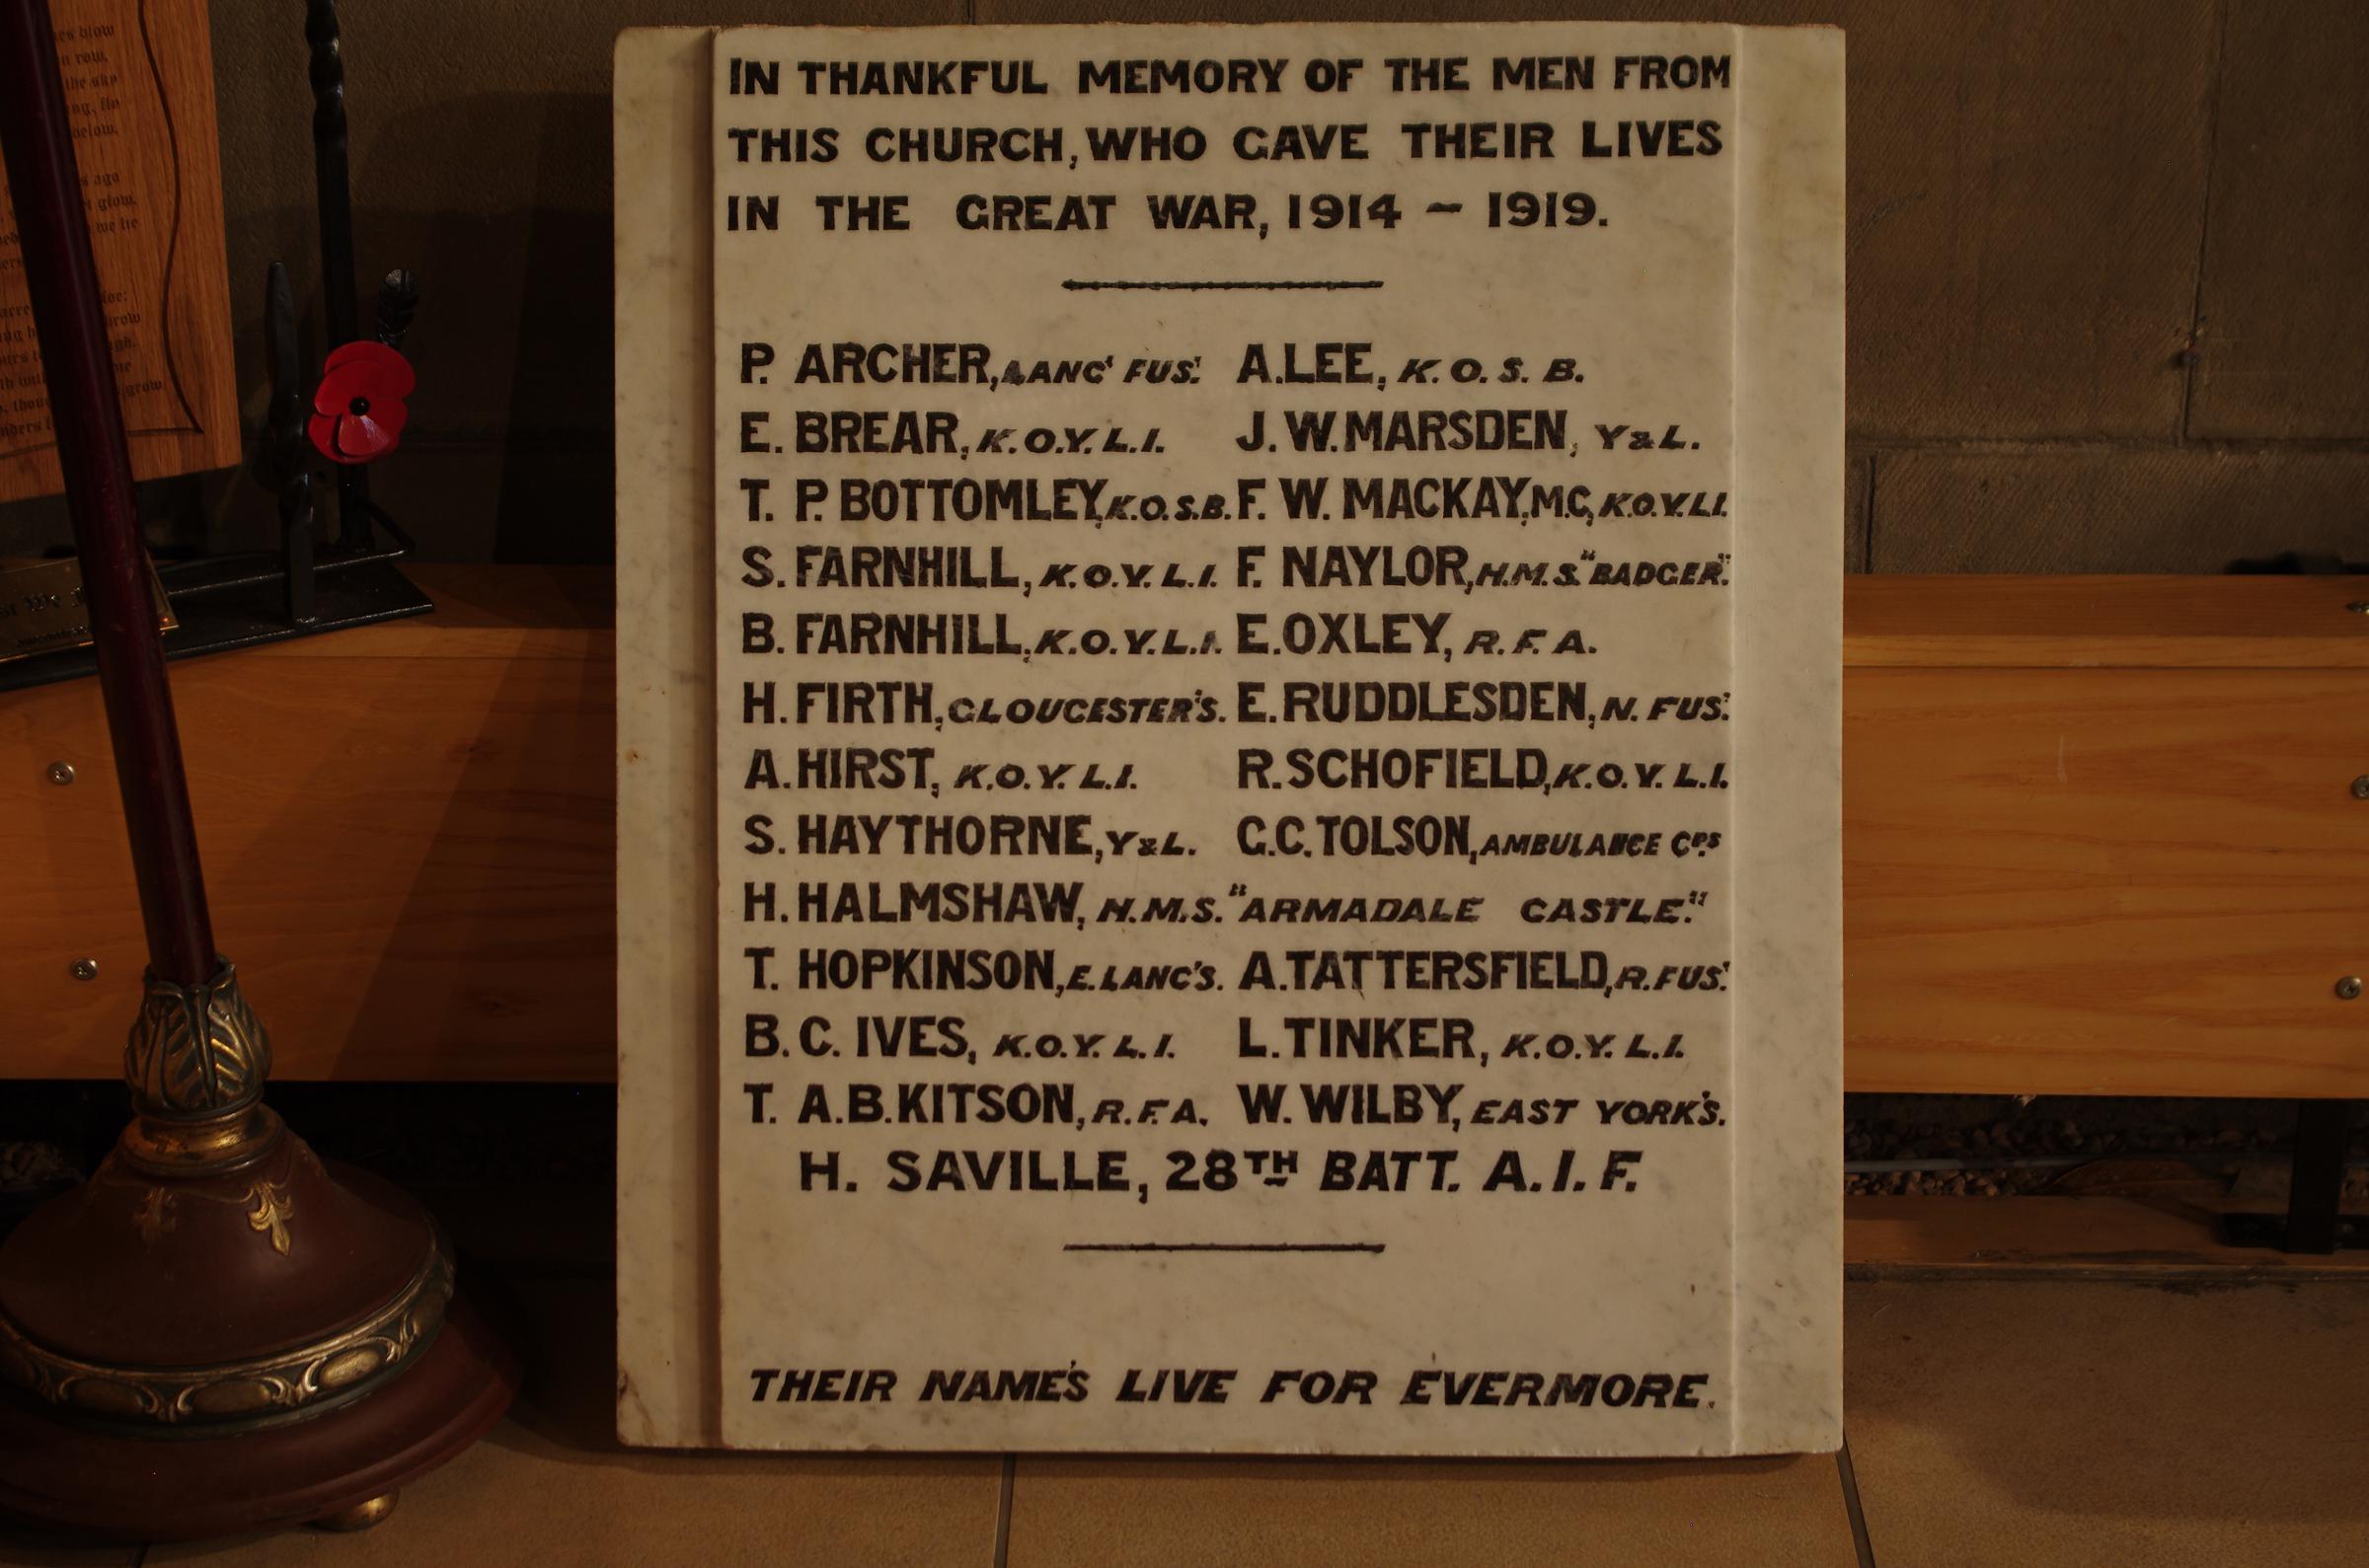 IN THANKFUL MEMORY OF THE MEN FROM
THIS CHURCH, WHO GAVE THEIR LIVES
IN THE GREAT WAR, 1914 – 1919.
P. ARCHER, LANC' FUS'. A. LEE, K.O.S.B.
E. BREAR, K.O.Y.L.I. J. W. MARSDEN, Y&L.
T. P. BOTTOMLEY, K.O.S.B. F. W. MACKAY, M.C, K.O.Y.L.I.
S. FARNHILL, K.O.Y.L.I. F. NAYLOR, H.M.S. "BADGER".
B. FARNHILL, K.O.Y.L.I. E. OXLEY, R.F.A.
H. FIRTH, GLOUCESTER'S. E. RUDDLESDEN, N. FUS'.
A. HIRST, K.O.Y.L.I. R. SCHOFIELD, K.O.Y.L.I.
S. HAYTHORNE, Y&L. G.C. TOLSON, AMBULANCE CPS
H. HALMSHAW, H.M.S. "ARMADALE CASTLE."
T. HOPKINSON, E. LANC'S. A. TATTERSFIELD, R. FUS'.
B. C. IVES, K.O.Y.L.I. L. TINKER, K.O.Y.L.I.
T. A.B. KITSON, R.F.A. W. WILBY, EAST YORK'S.
H. SAVILLE, 28TH BATT. A.I.F.
THEIR NAME'S LIVE FOR EVERMORE.
blow
row,
the sky
below.
ago
glow,
we lie
grow